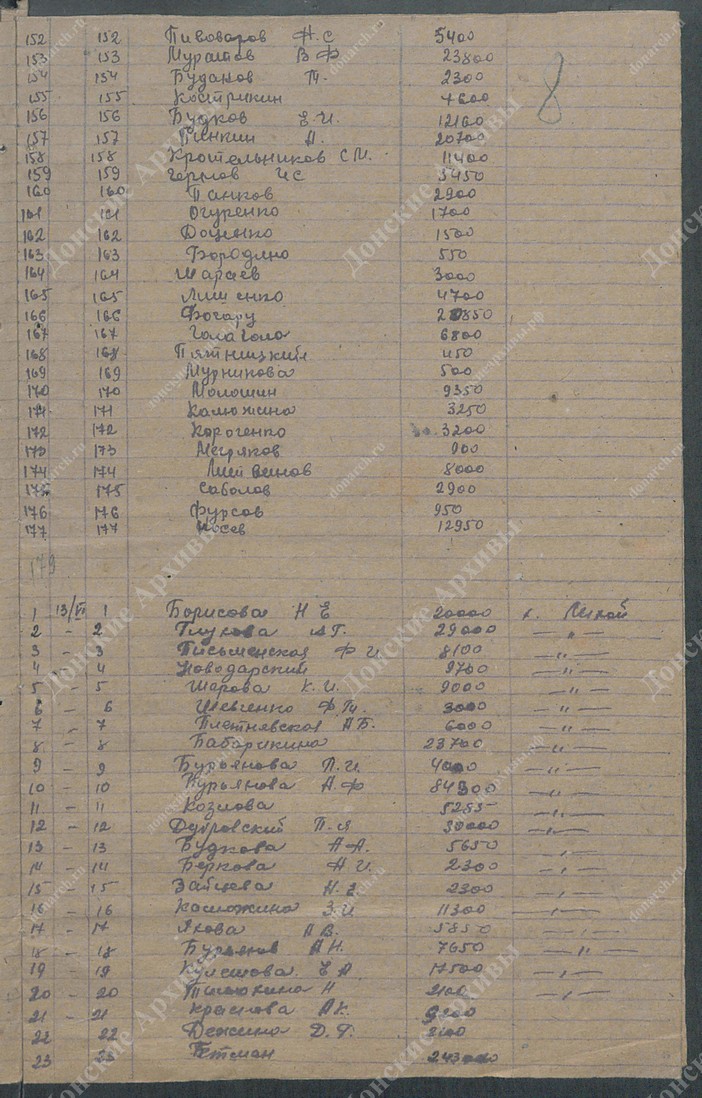 8
152 152 Пивоваров Н.С 5400
153 153 Муратов В Ф 23800
154 154 Буданов Т. 2300
155 155 Кострикин 4600
156 156 Будков Е.И. 12160
157 157 Пинкин А. 20700
158 158 Кротельников С М. 11400
159 159 И С 3450
160 160 Панков 2900
161 161 Огуренко 1700
162 162 Доценко 1500
163 163 Бородино 550
164 164 Шараев 3000
165 165 Лиш енко 4700
166 166 Богару
167 167 Гола Гола 6800
168 168 Пятницкий 450
169 169 Мурникова 500
170 170 Молошин 9350
171 171 Калюжина 3250
172 172 Короченко 3200
173 173 Меряков 900
174 174 Литвинов 8000
175 175 Саболов 2900
176 176 Фурсов 950
177 177 Носев 12950
179
1 13/VI 1 Борисова Н Е 20000 х. Лихой
2 - 2 Глухова А Г. 29000 — " —
3 - 3 Письменская Ф И 8100 — " —
4 - 4 Новодарский 9700 — " —
5 - 5 Шарова К. И. 9000 — " —
6 - 6 Шевченко Ф 3000 — " —
7 - 7 Плетнявская А Б. 6000 — " —
8 - 8 Бабарикина 23700 — " —
9 - 9 Бурьянова П. И. 4000 — " —
10 - 10 Курьянова А. Ф 84300 — " —
11 - 11 Козлова 5285 — " —
12 - 12 Дубровский П-я 30000 — " —
13 - 13 Будкова А А. 5650 — " —
14 - 14 Беркова А И. 2300 — " —
15 - 15 Зайцева Н. 2300 — " —
16 - 16 Калюжина З И 11300 — " —
17 - 17 Яхова А В. 5850 — " —
18 - 18 Бурьянов А Н. 7650 — " —
19 - 19 Кулешова Е А 17500 — " —
20 - 20 Н 2100 — " —
21 - 21 Краснова А К.
22 22 Бежина Д. Ф. 2100
23 23 Гетман